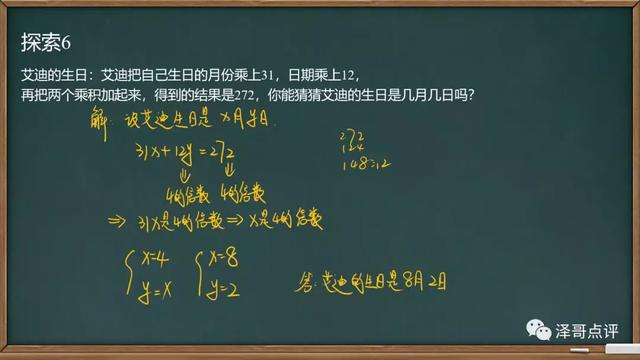 探索6
艾迪的生日：艾迪把自己生日的月份乘上31，日期乘上12，
再把两个乘积加起来，得到的结果是272，你能猜猜艾迪的生日是几月几日吗？
解：设艾迪生日是x月y日.
31x+12y=272
4的倍数 4的倍数
⇒ 31x是4的倍数⇒x是4的倍数
x=4 x=8
y=x y=2
答：艾迪的生日是8月2日
272
124
148÷12
泽哥点评